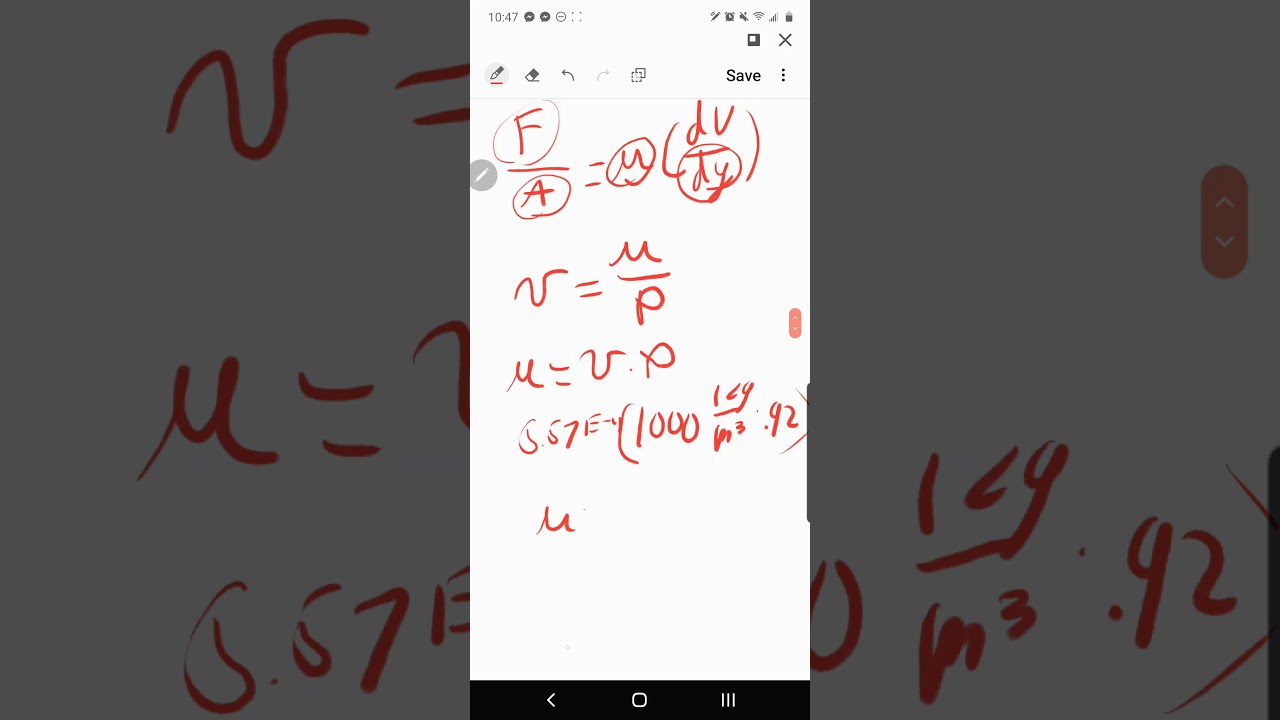 10:47
Save
F/A = μ(dv/dy)
ν = μ/ρ
μ = ν.ρ
5.57E-4(1000 kg/m³ · .92)
μ